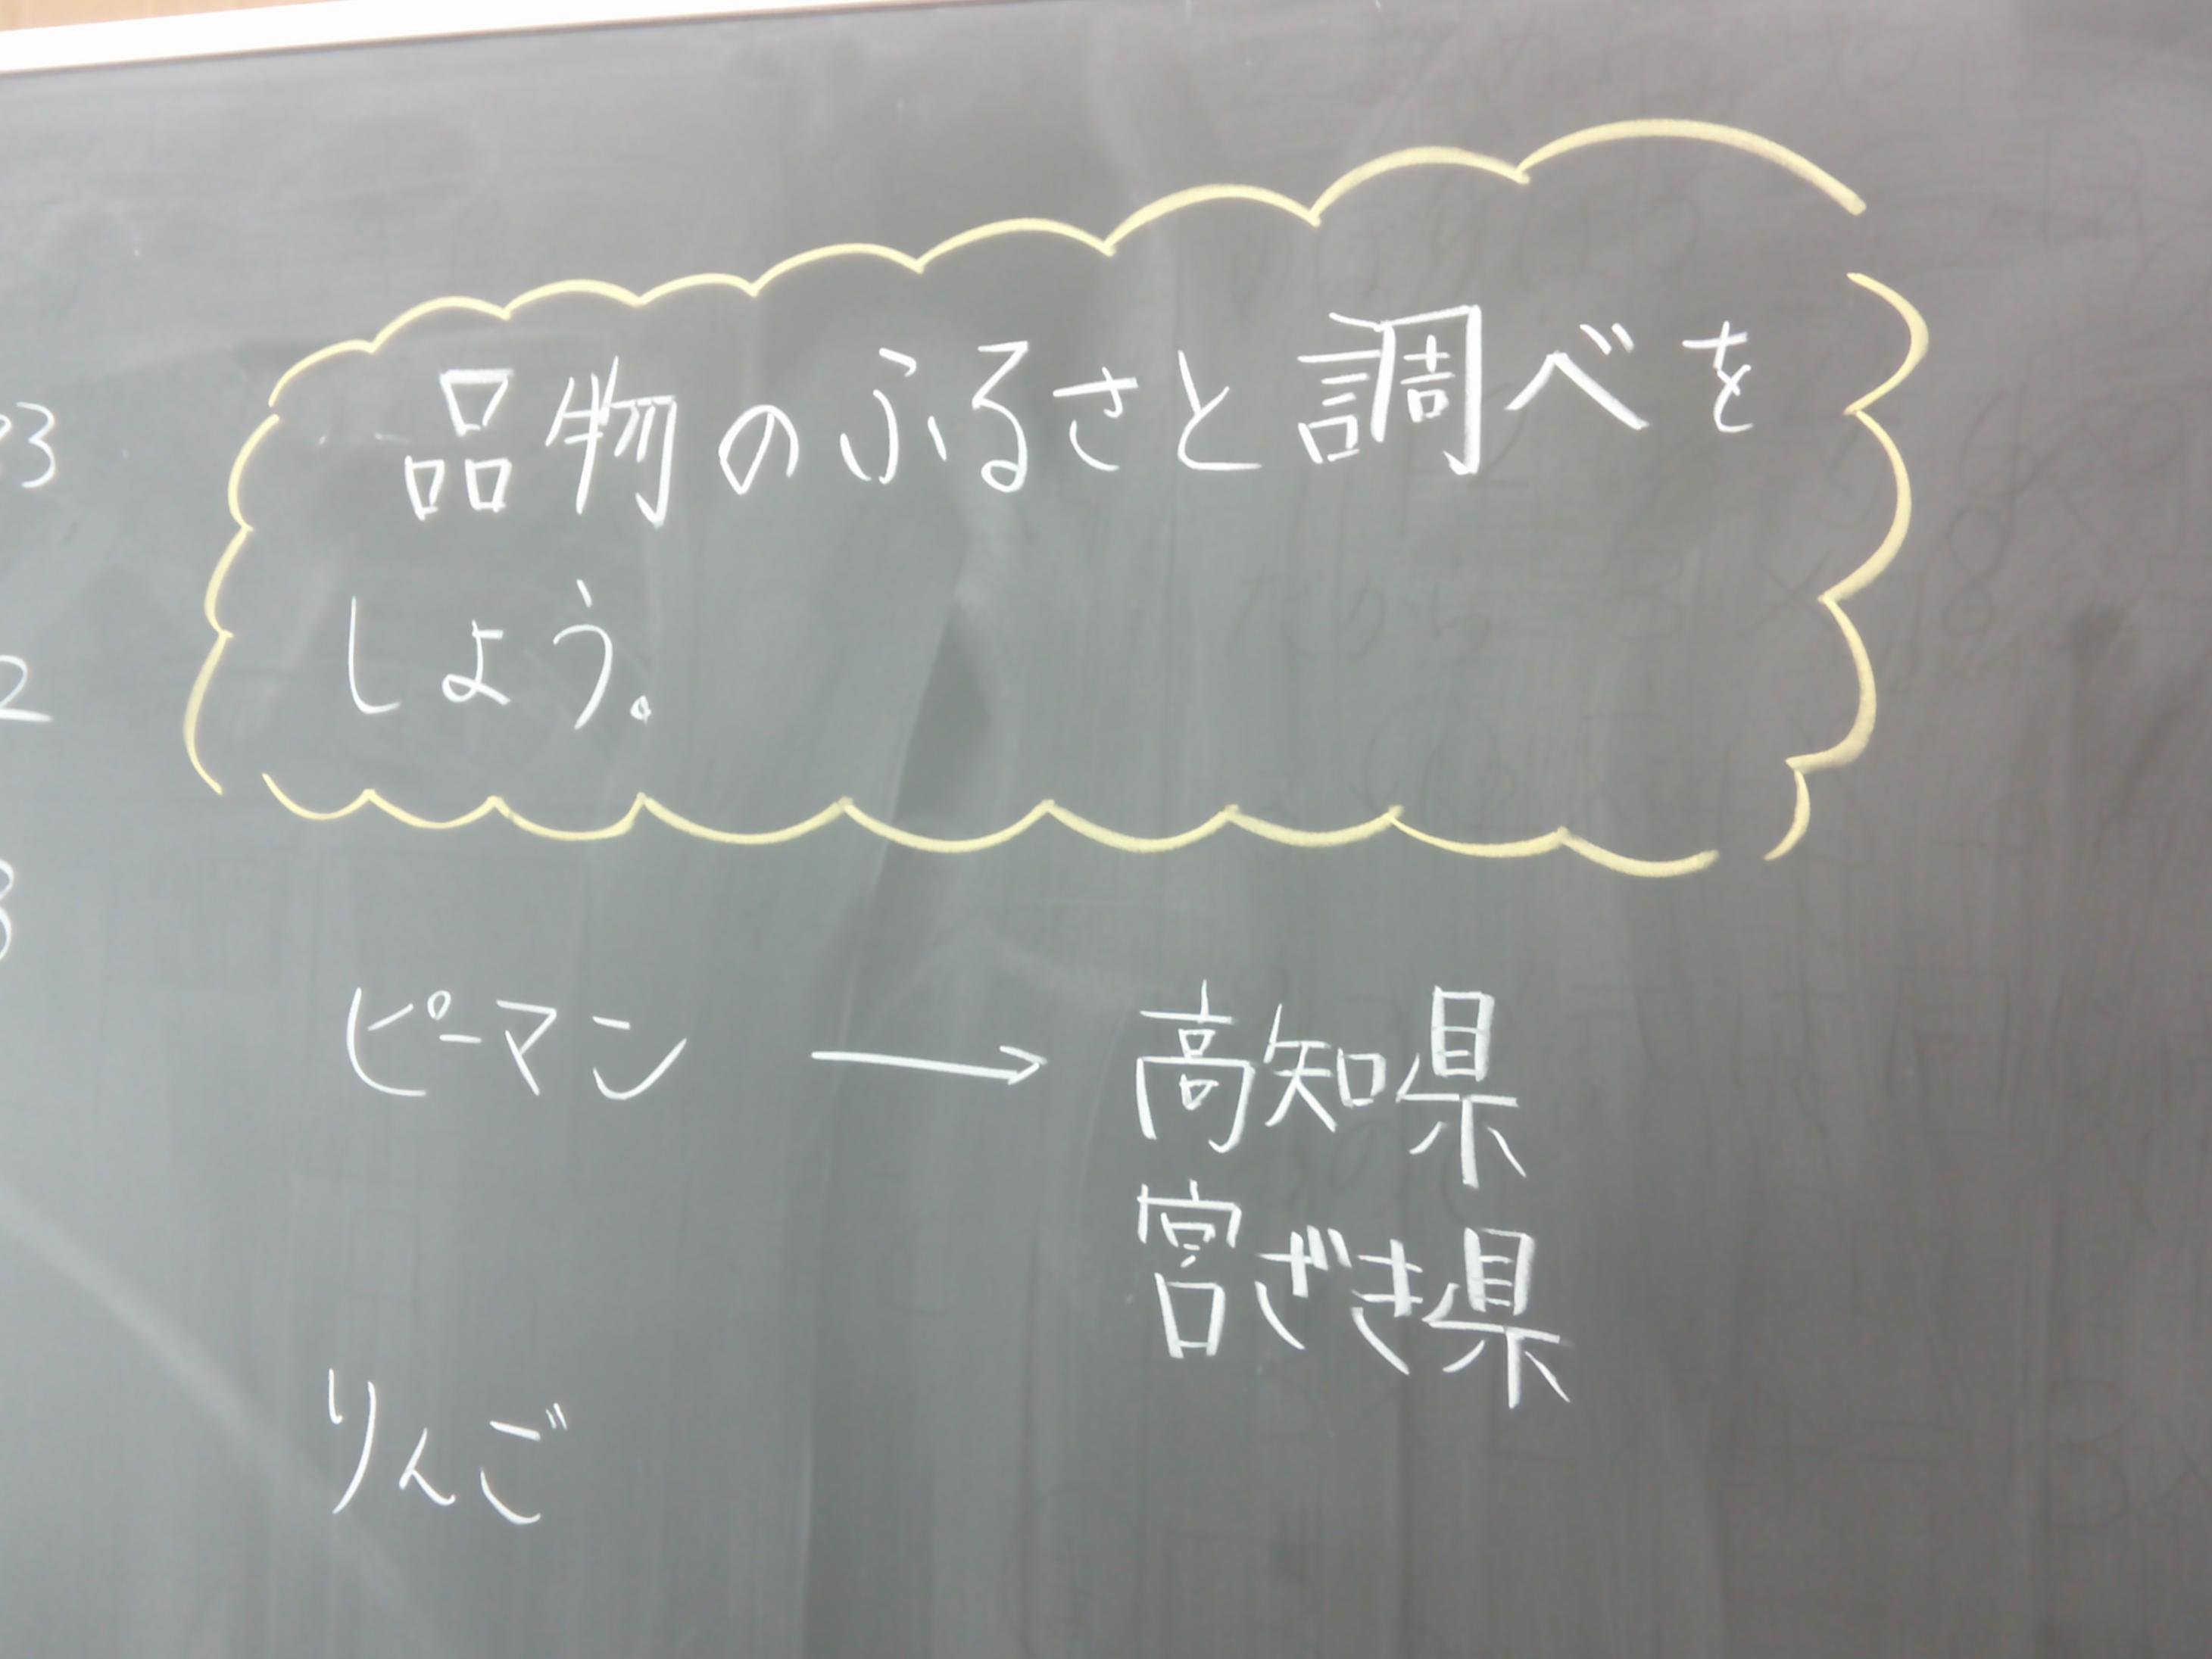 品物のふるさと調べを
しょう。
ピーマン → 高知県
宮ざき県
りんご
3
2
3